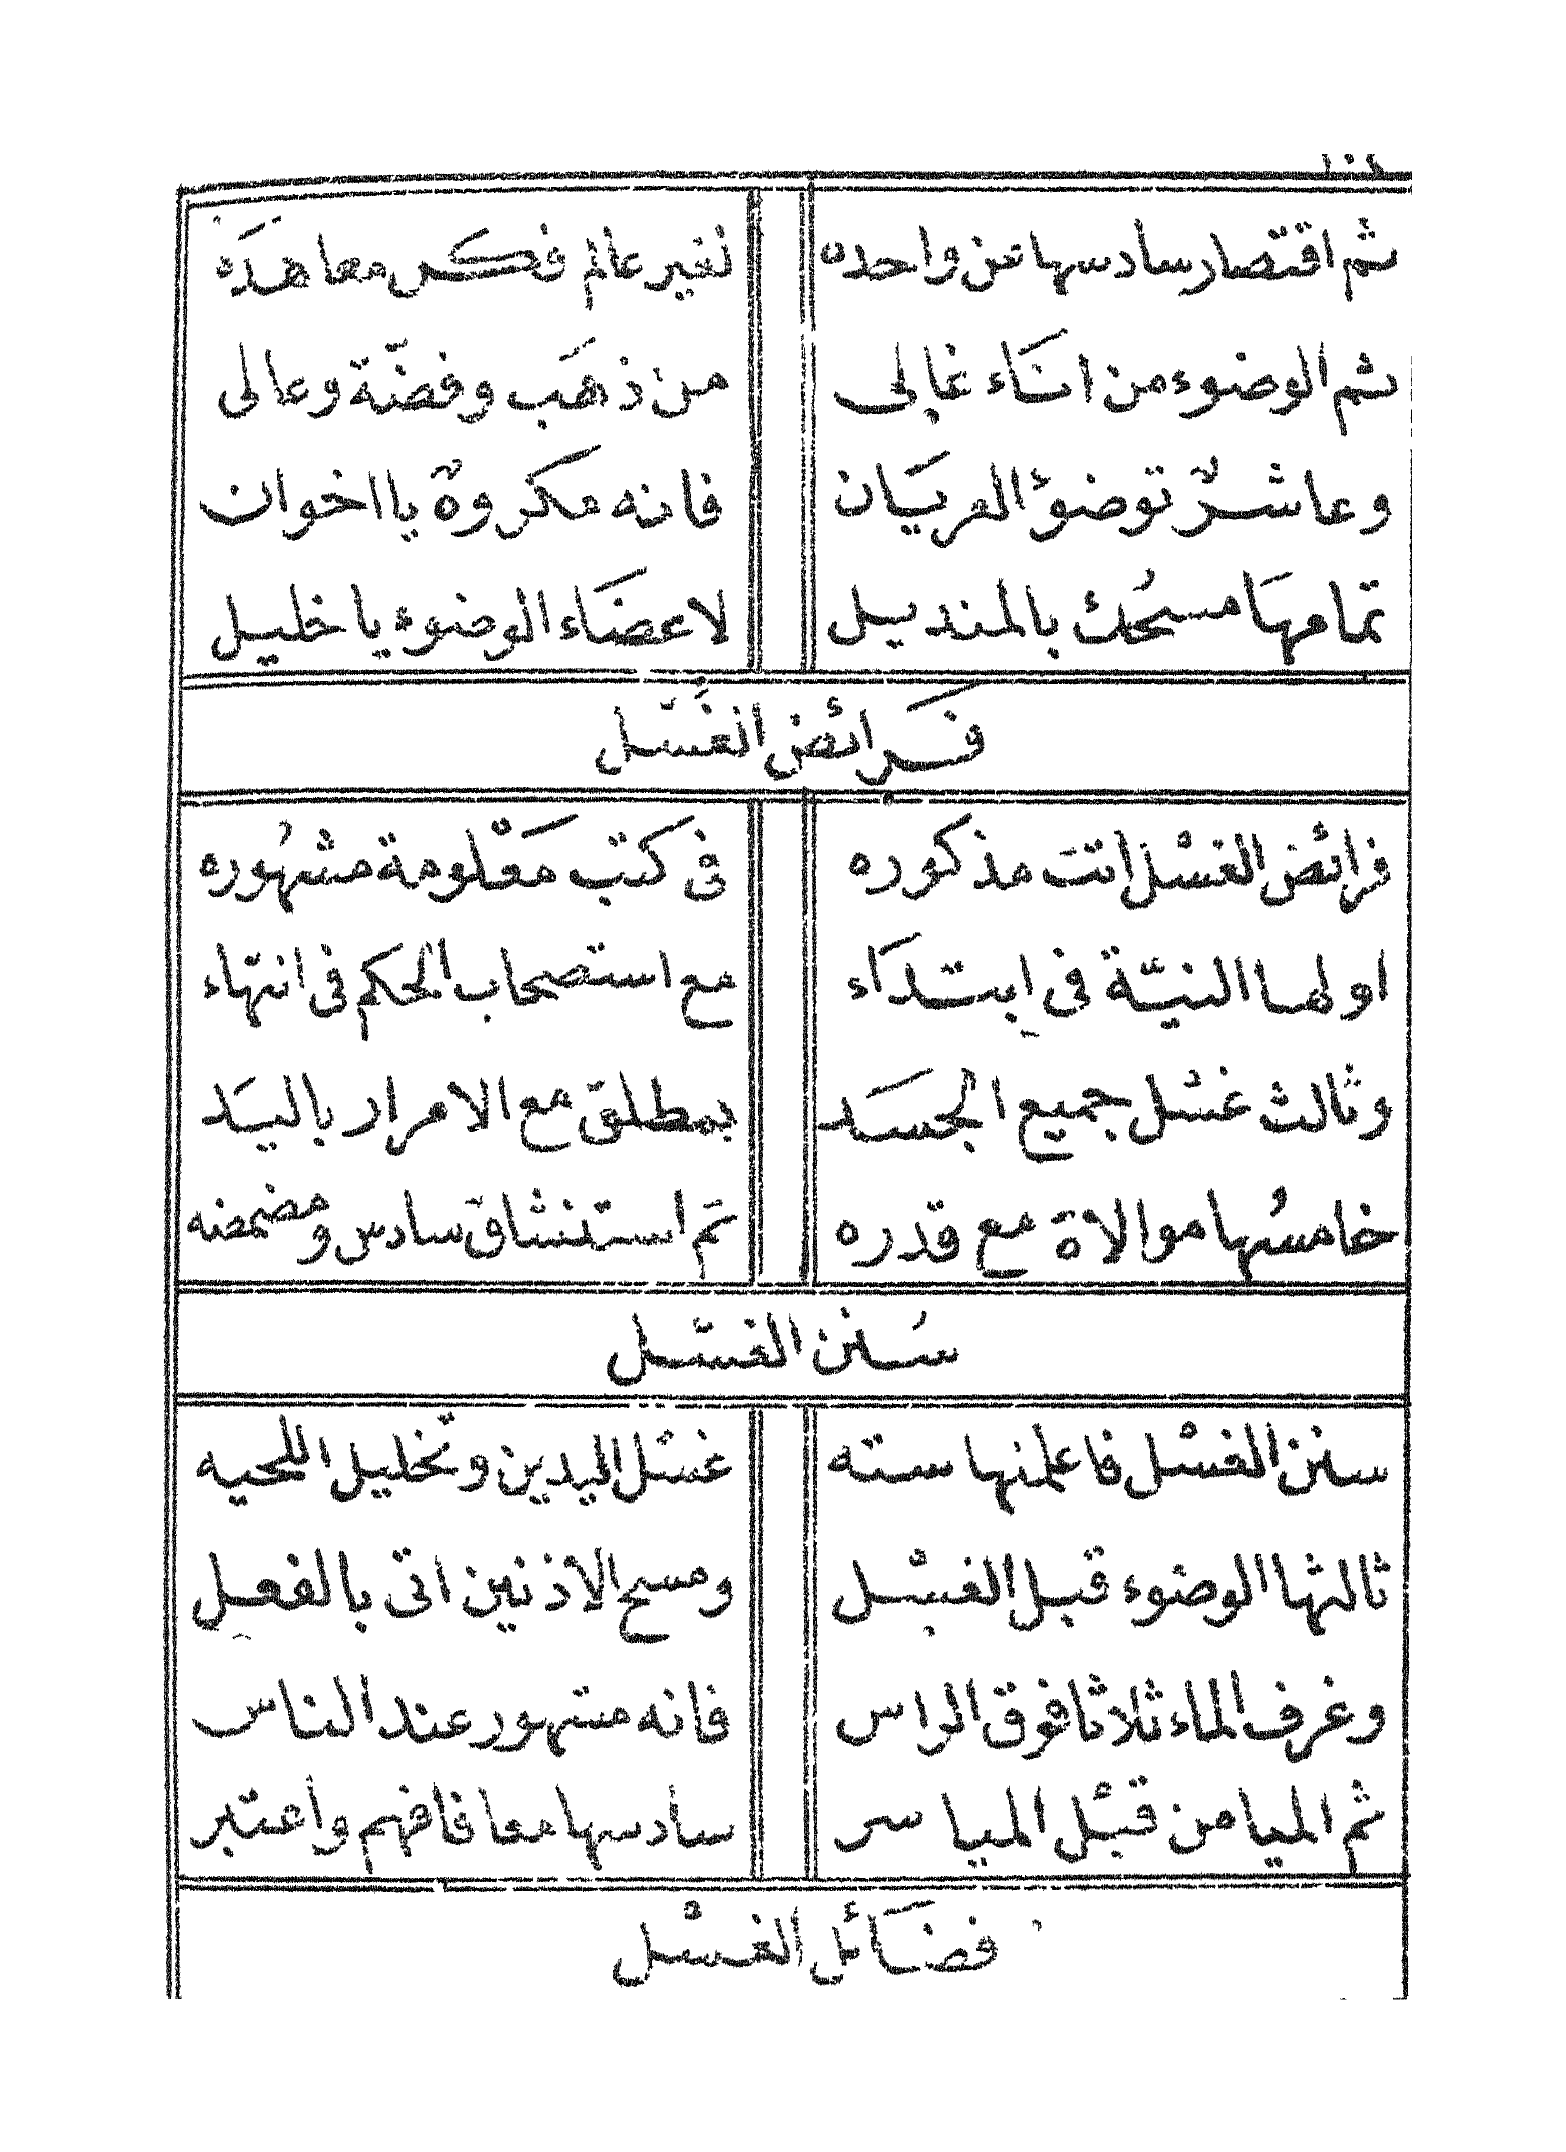 ثم اقتصار سادسها عن واحده لغير عالم فكس معاهدة
ثم الوضوء من اناء غالى من ذهب وفضة وعالى
وعاشر توضؤ العريان فانه مكروه يا اخوان
تمامها مسحك بالمنديل لاعضاء الوضوء يا خليل
فرائض الغسل
فرائض الغسل اتت مذكوره فى كتب معلومة مشهوره
اولها النية فى ابتداء مع استصحاب الحكم فى انتهاء
وثالث غسل جميع الجسد بمطلق مع الامرار باليد
خامسها موالاة مع قدره ثم استنشاق سادس ومضمضه
سنن الغسل
سنن الغسل فاعلمنها سته غسل اليدين وتخليل اللحيه
ثالثها الوضوء قبل الغسل ومسح الاذنين اتى بالفعل
وغرف الماء ثلاثا فوق الراس فانه مشهور عند الناس
ثم الميا من قبل الميا سر سادسها معا فافهم واعتبر
فضائل الغسل